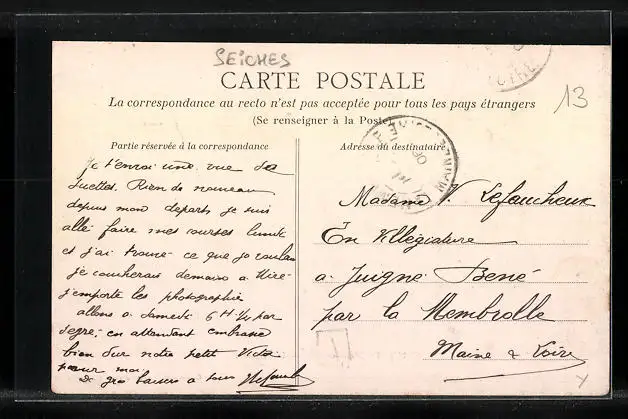 SEICHES
13
CARTE POSTALE
La correspondance au recto n'est pas acceptée pour tous les pays étrangers
(Se renseigner à la Poste)
Partie réservée à la correspondance
Je t'envoi une vue des
Sucettes. Rien de nouveau
depuis mon depart, je suis
allé faire mes courses lundi
et j'ai trouvé ce que je voulais
je coucherais demain a
j'emporte les photographie
allons a Samedi 6 H 1/4 par
Segré, en attendant embrasse
bien sur notre petit Victor
pour moi
De gros baisers a tous
Adresse du destinataire
Madame V. Lefaucheux
En Villégiature
a Juigné Bené
par la Membrolle
Maine & Loire
T